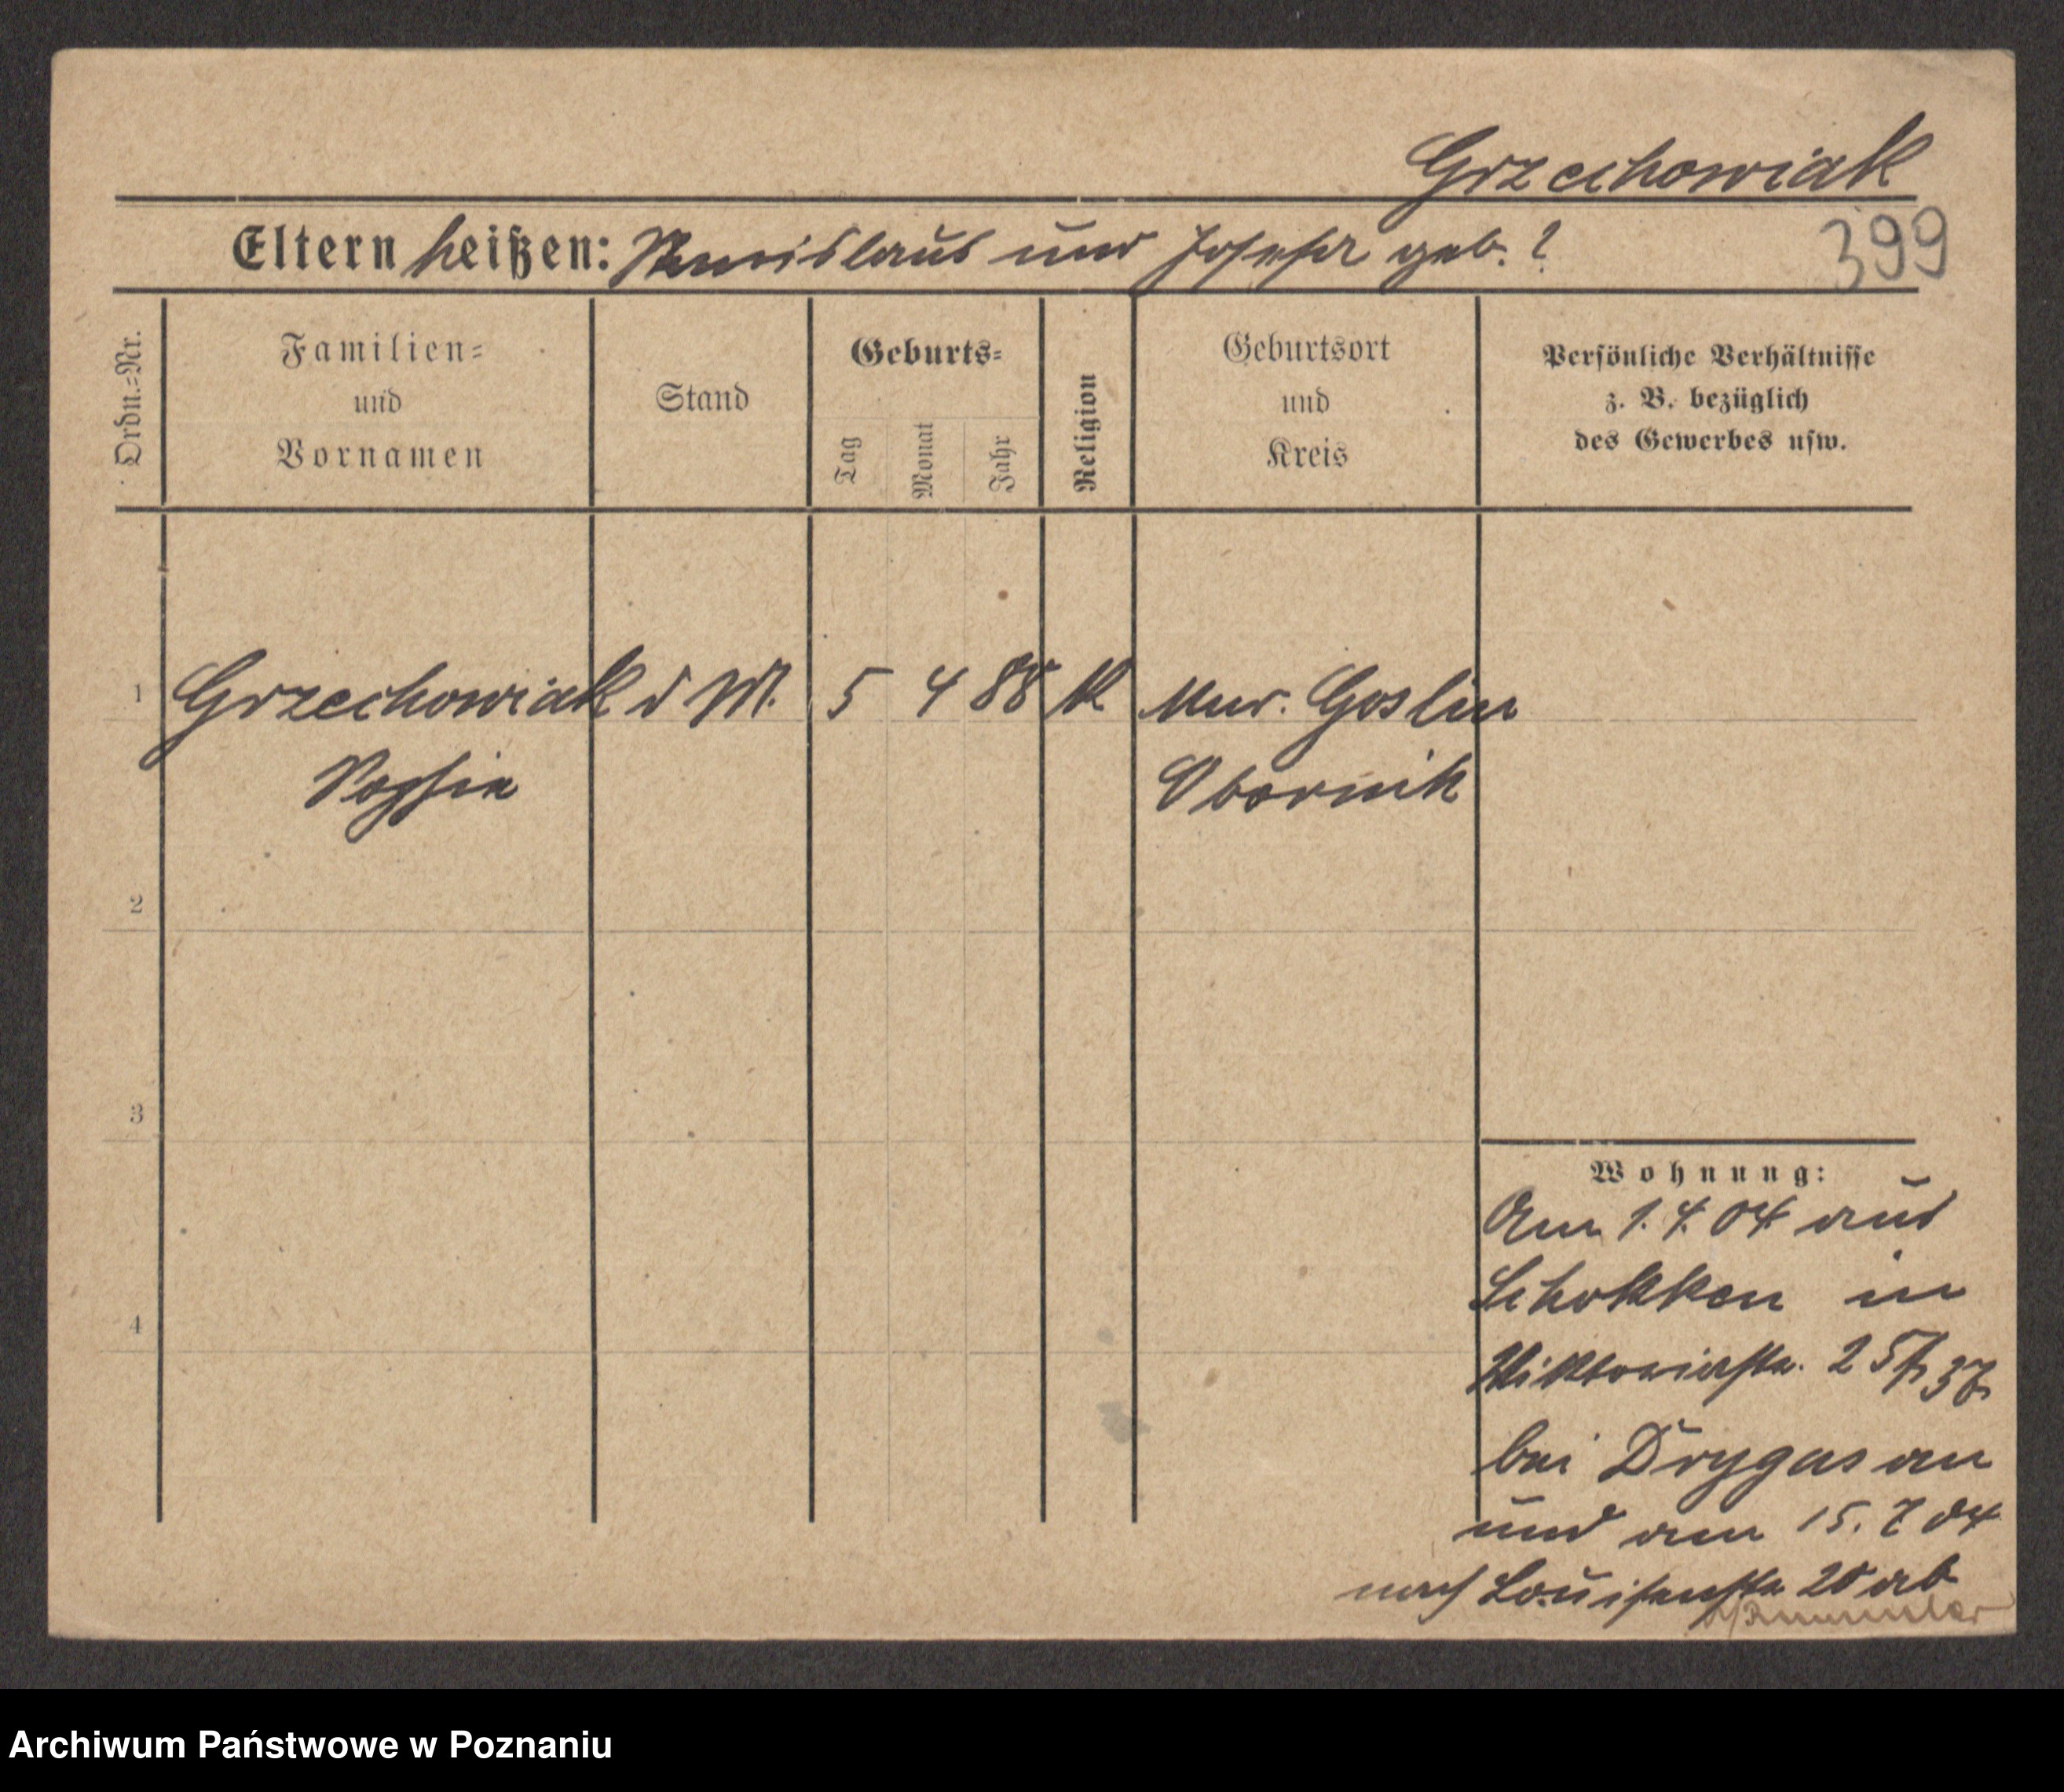 Grzechowiak
Eltern heißen: Stanislaus und Josefa geb. ?
399
Ordn.=Nr.
Familien=
und
Vornamen
Stand
Geburts=
Tag
Monat
Jahr
Religion
Geburtsort
und
Kreis
Persönliche Verhältnisse
z. B. bezüglich
des Gewerbes usw.
1 Grzechowiak d M. 5 4 88 K Mur. Goslin
Obornik
2
3
4
Wohnung:
Am 1.4.04 aus
Schokken in
Viktoriastr. 25
bei Drygas an
und am 15. 7 04
nach Louisenstr 20 ab
Archiwum Państwowe w Poznaniu